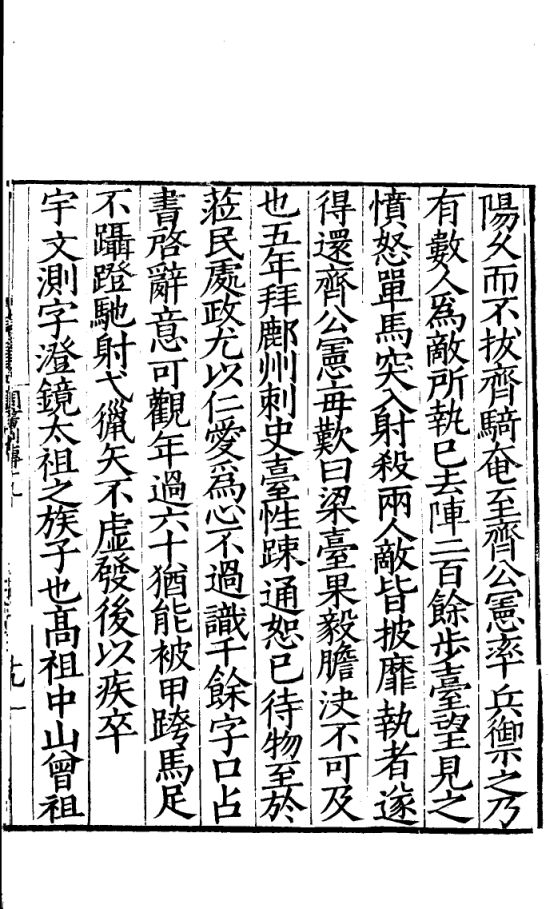 陽久而不拔齊騎奄至齊公憲率兵禦之乃
有數人爲敵所執已去陣二百餘步臺望見之
憤怒單馬突入射殺兩人敵皆披靡執者遂
得還齊公憲每歎曰梁臺果毅膽決不可及
也五年拜鄜州刺史臺性踈通恕已待物至於
莅民處政尤以仁愛爲心不過識千餘字口占
書啓辭意可觀年過六十猶能被甲跨馬足
不躡蹬馳射弋獵矢不虛發後以疾卒
宇文測字澄鏡太祖之族子也高祖中山曾祖